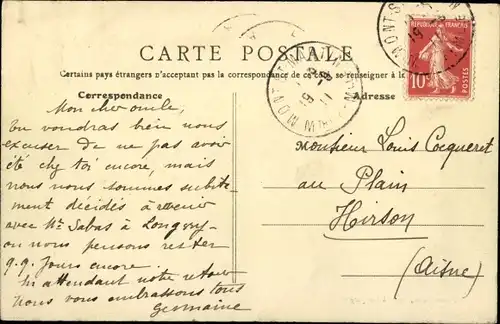 CARTE POSTALE
Certains pays étrangers n'acceptent pas la correspondance de ce côté, se renseigner à la
Correspondance
Adresse
Mon cher oncle,
Tu voudras bien nous
excuser de ne pas avoir
été chez toi encore, mais
nous nous sommes subite-
ment décidés à revenir
avec Mr Sabas à Longwy
on nous pensons rester
q.q. jours encore.
En attendant notre retour
Nous vous embrassons tous
Germaine
Monsieur Louis Cocqueret
au Plain
Hirson
(Aisne)
REPUBLIQUE FRANÇAISE
10